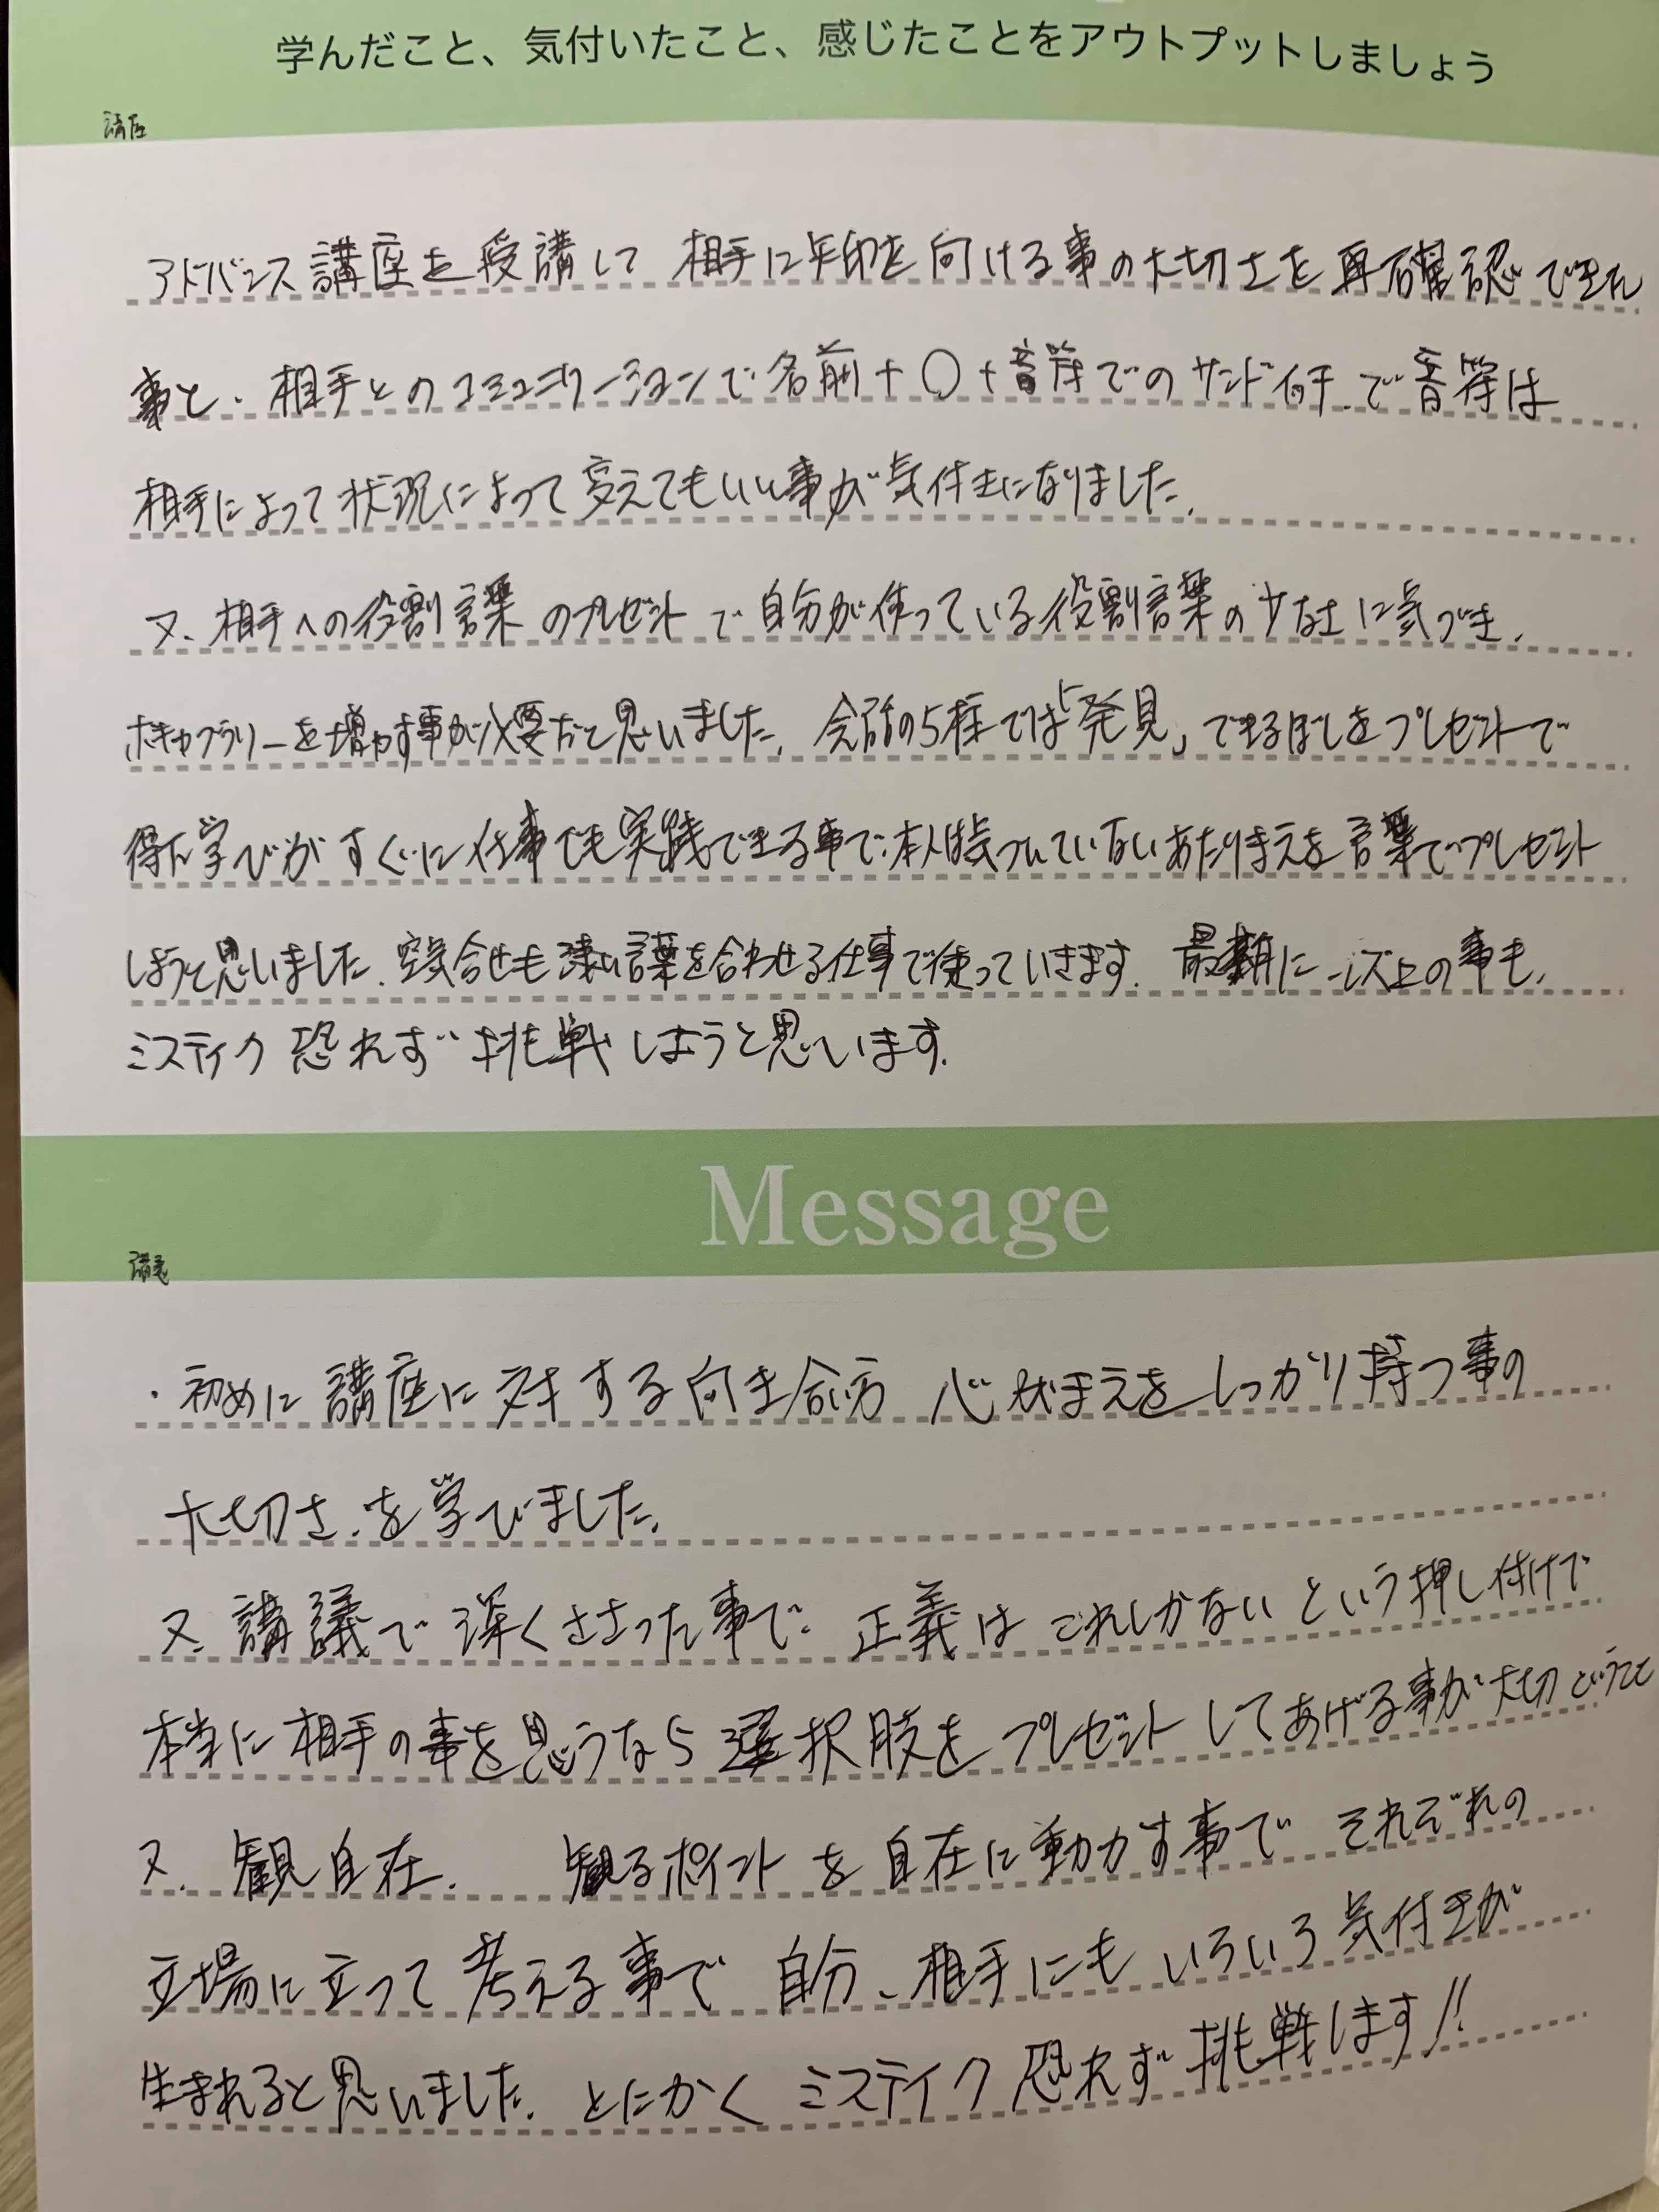 学んだこと、気付いたこと、感じたことをアウトプットしましょう
講座
アドバンス講座を受講して 相手に矢印を向ける事の大切さを再確認できた
事と、相手とのコミュニケーションで名前+〇+音符でのサンドイッチで音符は
相手によって状況によって変えてもいい事が気付きになりました。
又、相手への役割言葉のプレゼントで自分が使っている役割言葉の少なさに気づき、
ボキャブラリーを増やす事が必要だと思いました。会話の5種では「発見」できるぼしをプレゼントで
得た学びがすぐに仕事でも実践できる事で本人は気づいていないあたりまえを言葉でプレゼント
しようと思いました。空気合せも 言葉を合わせる仕事で使っていきます。最期に 以上の事も、
ミスティク恐れず挑戦しようと思います。
Message
講義
・初めに講座に対する向き合い方 心がまえをしっかり持つ事の
大切さ、を学びました。
又、講議で深くささった事で 正義はこれしかないという押し付けで
本当に相手の事を思うなら選択肢をプレゼントしてあげる事が大切ということ
又、観自在. 観るポイントを自在に動かす事で それぞれの
立場に立って考える事で 自分、相手にもいろいろ気付きが
生まれると思いました。とにかく ミスティク恐れず挑戦します!!